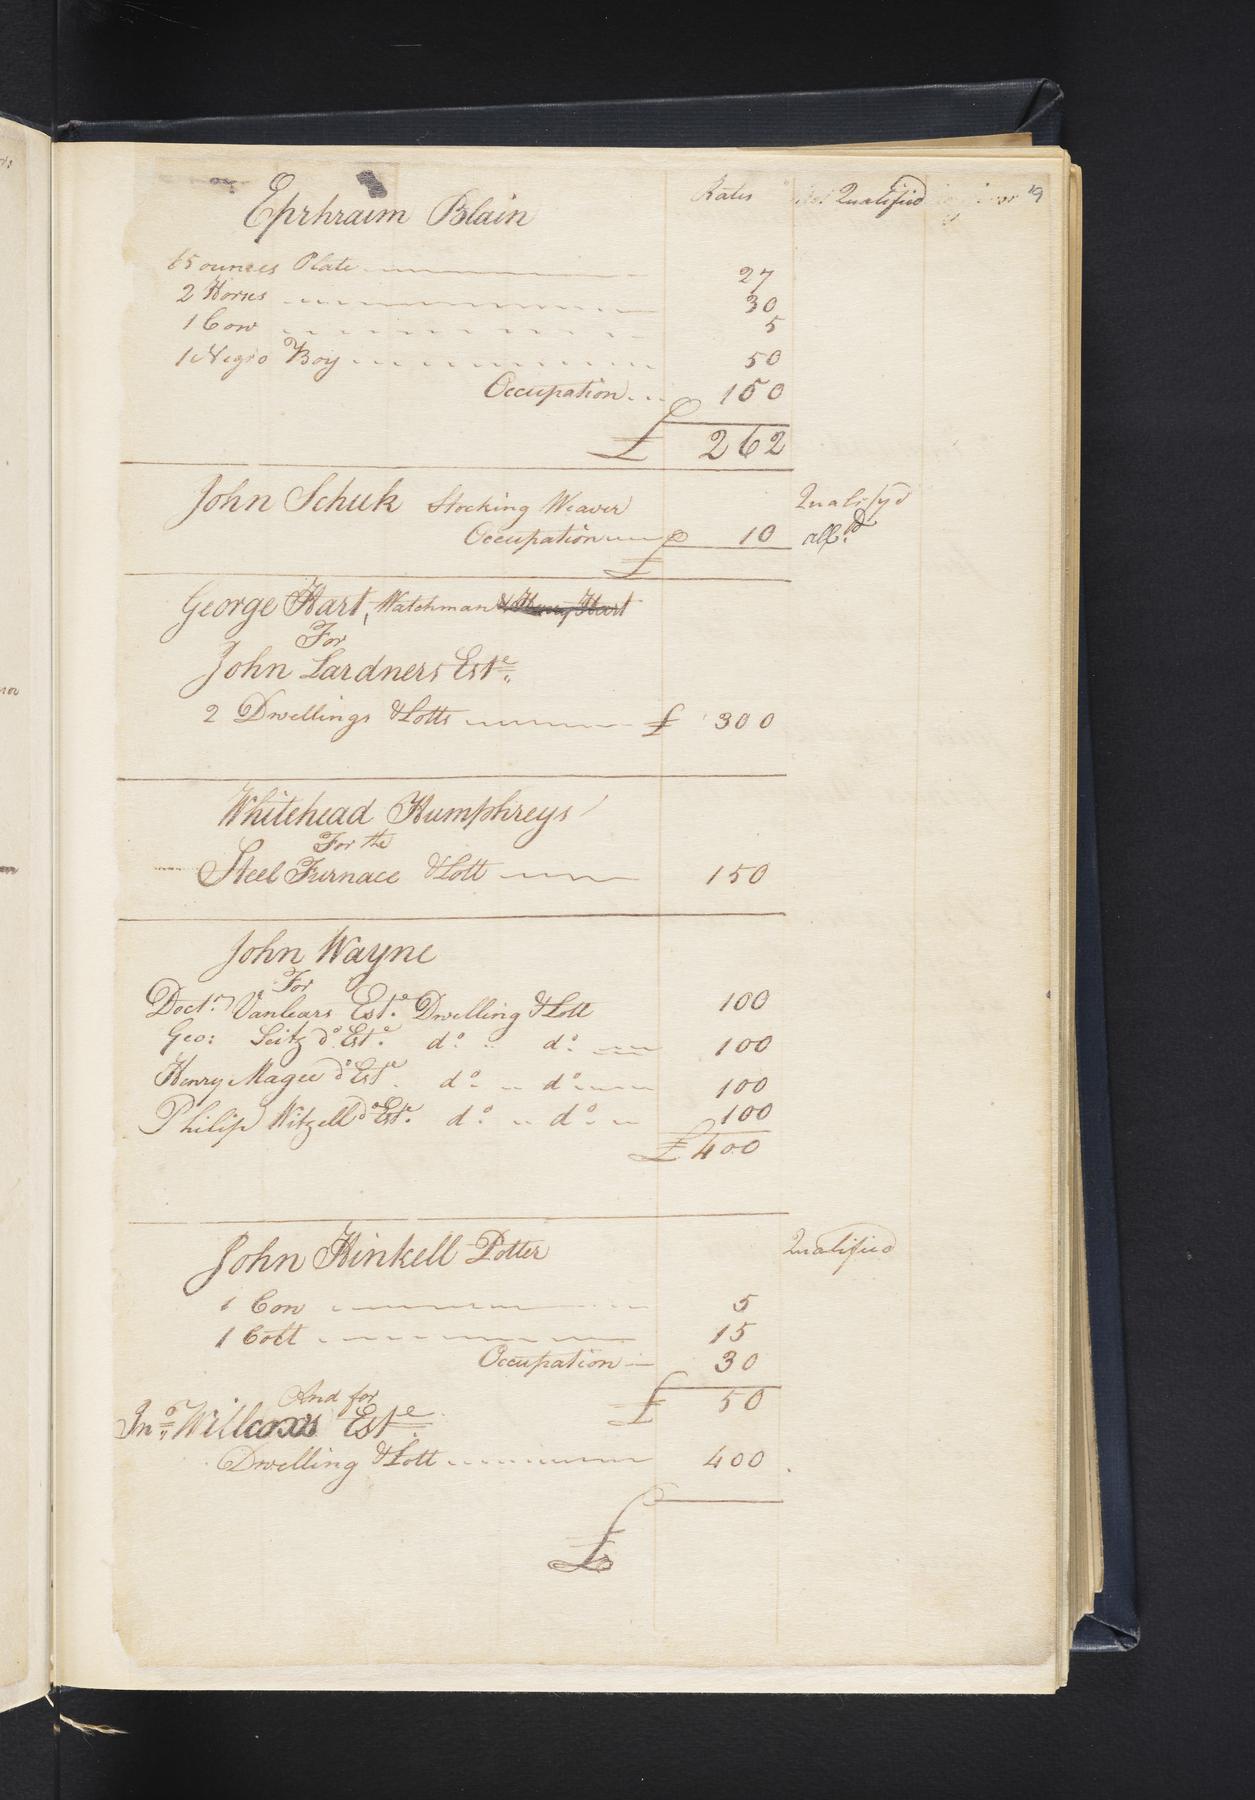 Rates Qualified 19
Ephraim Blain
65 ounces Plate 27
2 Horses 30
1 Cow 5
1 Negro Boy 50
Occupation 150
£ 262
John Schuk Stocking Weaver Qualifyd
Occupation £ 10 aff.d
George Hart, Watchman & Henry Hart
For
John Lardners Est.e
2 Dwellings & Lotts £ 300
Whitehead Humphreys
For the
Steel Furnace & Lott 150
John Wayne
For
Doct.r Vanlears Est.e Dwelling & Lott 100
Geo: Seitz do Est.e do do 100
Henry Magee do Est.e do do 100
Philip Witzell do Est.e do do 100
£ 400
John Hinkell Potter Qualified
1 Cow 5
1 Colt 15
Occupation 30
£ 50
And for
Jno Willcoxs Est.e
Dwelling & Lott 400
£